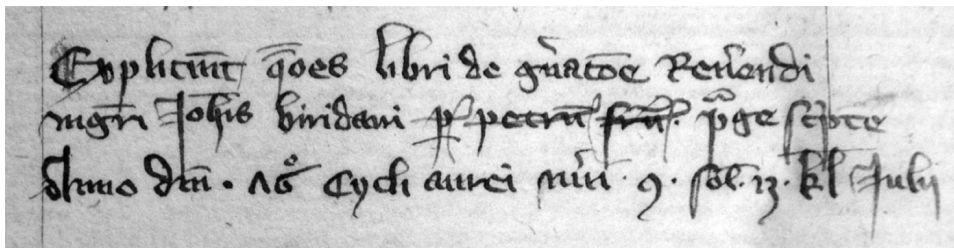 Expliciunt q̄ōes libri de gn̄acōe Reuerendi
mgr̄i Joh̄is biridani per petrū p̄ge scripte
Anno dn̄i · Cycli aurei nūi · 9 · sol · 13 · kl Julii